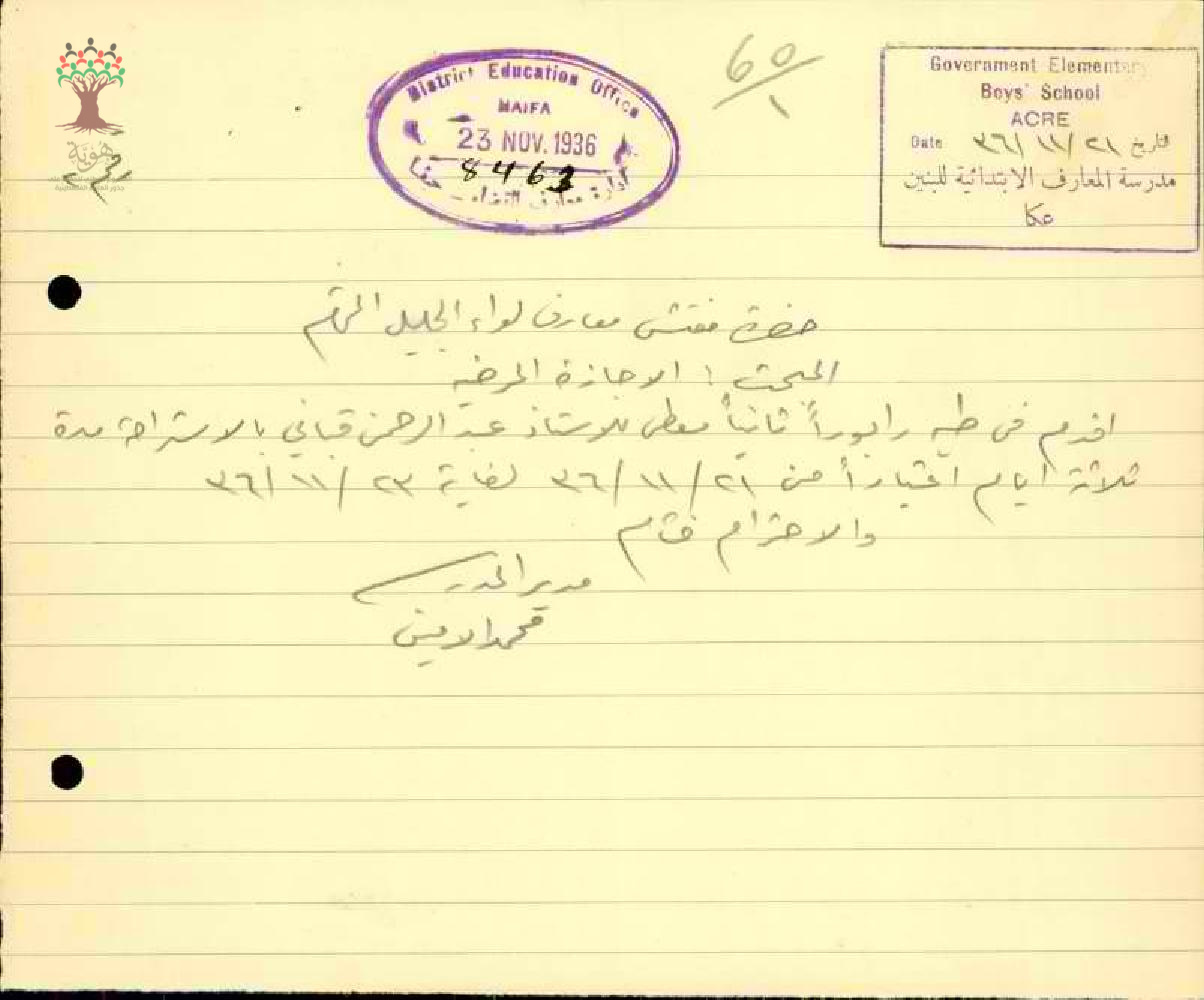 هوية
District Education Office
HAIFA
23 NOV. 1936
8463
ادارة معارف حيفا
60/1
Government Elementary
Boys' School
ACRE
Date ٣٦/١١/٢١ تاريخ
مدرسة المعارف الابتدائية للبنين
عكا
حضرة مفتش معارف لواء الجليل المحترم
المبحث : الاجازة المرضية
اقدم في طيه رابوراً ثانياً معطى للاستاذ عبد الرحمن قباني بالاستراحة مدة
ثلاثة ايام اعتباراً من ٣٦/١١/٢١ لغاية ٣٦/١١/٢٣
والاحترام ختام
مدير المدرسة
محمد الامين